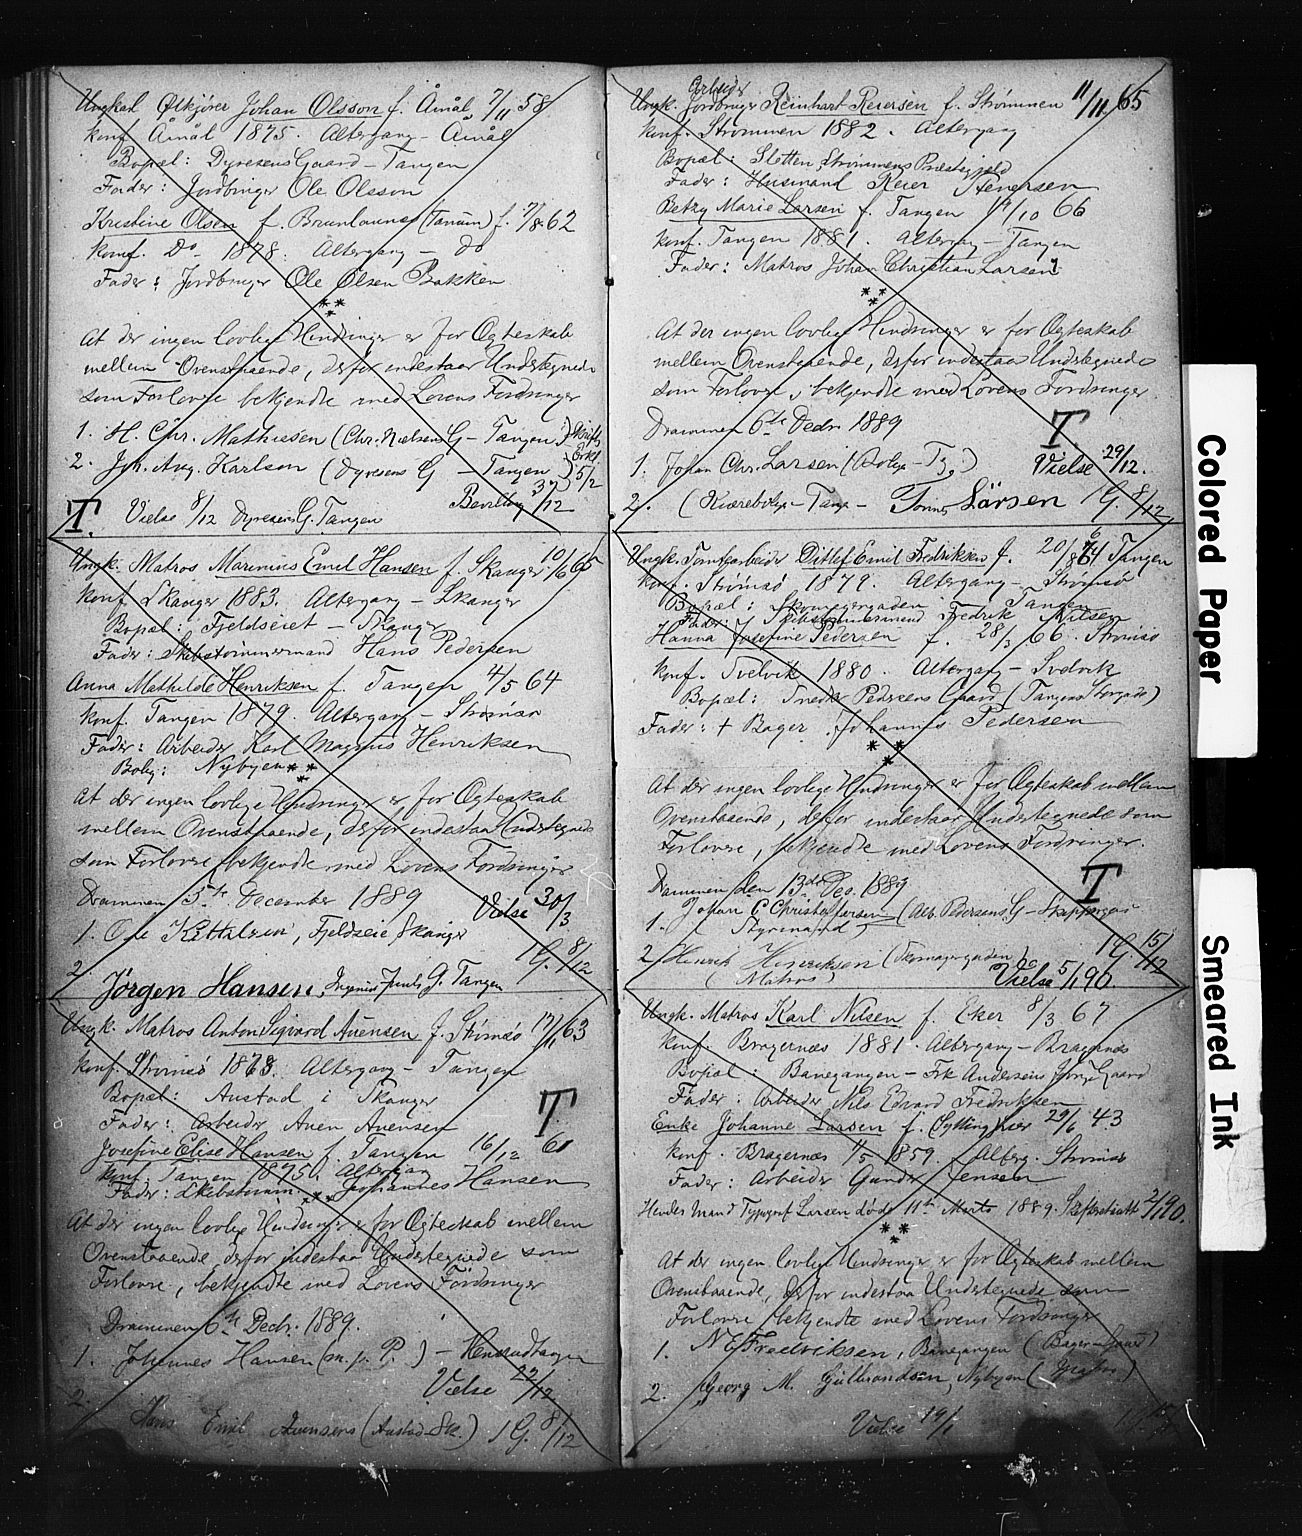 Ungkarl Ølkjører Johan Olsson f. Åmål 7/11 58
konf. Åmål 1875. Altergang – Åmål
Bopæl: Dyresens Gaard – Tangen
Fader: Jordbruger Ole Olsson
Kristine Olsen f. Brunlaunæs (Tanum) f. 7/8 62
konf. Do 1878. Altergang – do
Fader: Jordbruger Ole Olsen Bakken
At der ingen lovlige Hindringer er for Ægteskab
mellem Ovenstaaende, derfor indestaar Undertegnede
som Forlovere bekjendte med Lovens Fordringer
1. H. Chr. Mathiesen (Chr. Nielsens G – Tangen)
2. Joh. Aug. Karlson (Dyresens G – Tangen) 5/2
Bevilling 3/12
T. Vielse 8/12 Dyresens G. Tangen
Ungk. Matros Marinius Emil Hansen f. Skanger 10/6 65
konf. Skanger 1883. Altergang – Skanger
Bopæl: Fjeldseiet – Skanger
Fader: Skibstømmermand Hans Pedersen
Anna Mathilde Henriksen f. Tangen 4/5 64
konf. Tangen 1879. Altergang – Strømsø
Fader: Arbeider Karl Magnus Henriksen
Bolig: Nybyen
At der ingen lovlige Hindringer er for Ægteskab
mellem Ovenstaaende, derfor indestaar Undertegnede
som Forlovere, bekjendte med Lovens Fordringer
Drammen 5te December 1889 Vielse 30/3
1. Ole Kittelsen, Fjeldseie, Skanger
1 G. 8/12
2. Jørgen Hansen, G. Tangen
Ungk. Matros Anton Sigvard Auensen f. Strømsø 17/11 63
konf. Strømsø 1878. Altergang – Tangen
Bopæl: Austad i Skanger
T
Fader: Arbeider Auen Auensen
Josefine Elise Hansen f. Tangen 16/12 60
konf. Tangen 1875. Altergang
Fader: Skibstømm. Johannes Hansen
At der ingen lovlige Hindringer er for Ægteskab mellem
Ovenstaaende, derfor indestaar Undertegnede som
Forlovere, bekjendte med Lovens Fordringer
Drammen 6te Decbr. 1889.
1. Johennes Hansen (m. p. P.)
Vielse 22/12
2. Hans Emil Auensens (Austad – Sk.) 1 G. 8/12
Arbeider
Ungk. Jordbruger Reinhart Reiersen f. Strømmen 11/11 65
konf. Strømmen 1882. Altergang
Bopæl: Sletten, Strømmens Præstegjeld
Fader: Husmand Reier Stenersen
Betzy Marie Larsen f. Tangen 14/10 66
konf. Tangen 1881. Altergang – Tangen
Fader: Matros Johan Christian Larsen
At der ingen lovlige Hindringer er for Ægteskab
mellem Ovenstaaende, derfor indestaar Undertegnede
som Forlovere, bekjendte med Lovens Fordringer.
Drammen 6te Decbr. 1889
T.
1. Johan Chr. Larsen Vielse 29/12.
2. Larsen 1 G. 8/12
Ungk. Tomtearbeider Ditlef Emil Fredriksen f. 20/8 64 Tangen
konf. Strømsø 1879. Altergang – Strømsø
Bopæl: Skomagergaden Tangen
Fader: Skibstømmermand Fredrik Nilsen
Hanna Josefine Pedersen f. 28/3 66. Strømsø
konf. Svelvik 1880. Altergang – Svelvik
Bopæl: Pedersens Gaard (Tangens Storgade)
Fader: + Bager Johannes Pedersen
At der ingen lovlige Hindringer er for Ægteskab mellem
Ovenstaaende, derfor indestaar Undertegnede som
Forlovere, bekjendte med Lovens Fordringer.
Drammen den 13de Dec. 1889
T
1. Johan C Christoffersen (Alb. Pedersens G –
Styrmand)
2 Henrik Henriksen (Skomagergaden 1 G. 15/12
(Matros) Vielse 5/1 90
Ungk. Matros Karl Nilsen f. Eker 8/3 67
konf. Bragernæs 1881. Altergang – Bragernæs
Bopæl: Banegangen – Frk Andersens Gaard
Fader: Arbeider Nils Edvard Fredriksen
Enke Johanne Larsen f. 29/6 43
konf. Bragernæs 1/5 1859. Alterg. Strømsø
Fader: Arbeider Gunder Jensen
Hendes Mand Typograf Larsen døde 11te Marts 1889. Skifteattest 2/1 90.
At der ingen lovlige Hindringer er for Ægteskab mellem
Ovenstaaende, derfor indestaa Undertegnede som
Forlovere bekjendte med Lovens Fordringer
1. N E Fredriksen, Banegangen
2. Georg M. Gulbrandsen, Nybyen
Vielse 19/1
Colored Paper
Smeared Ink